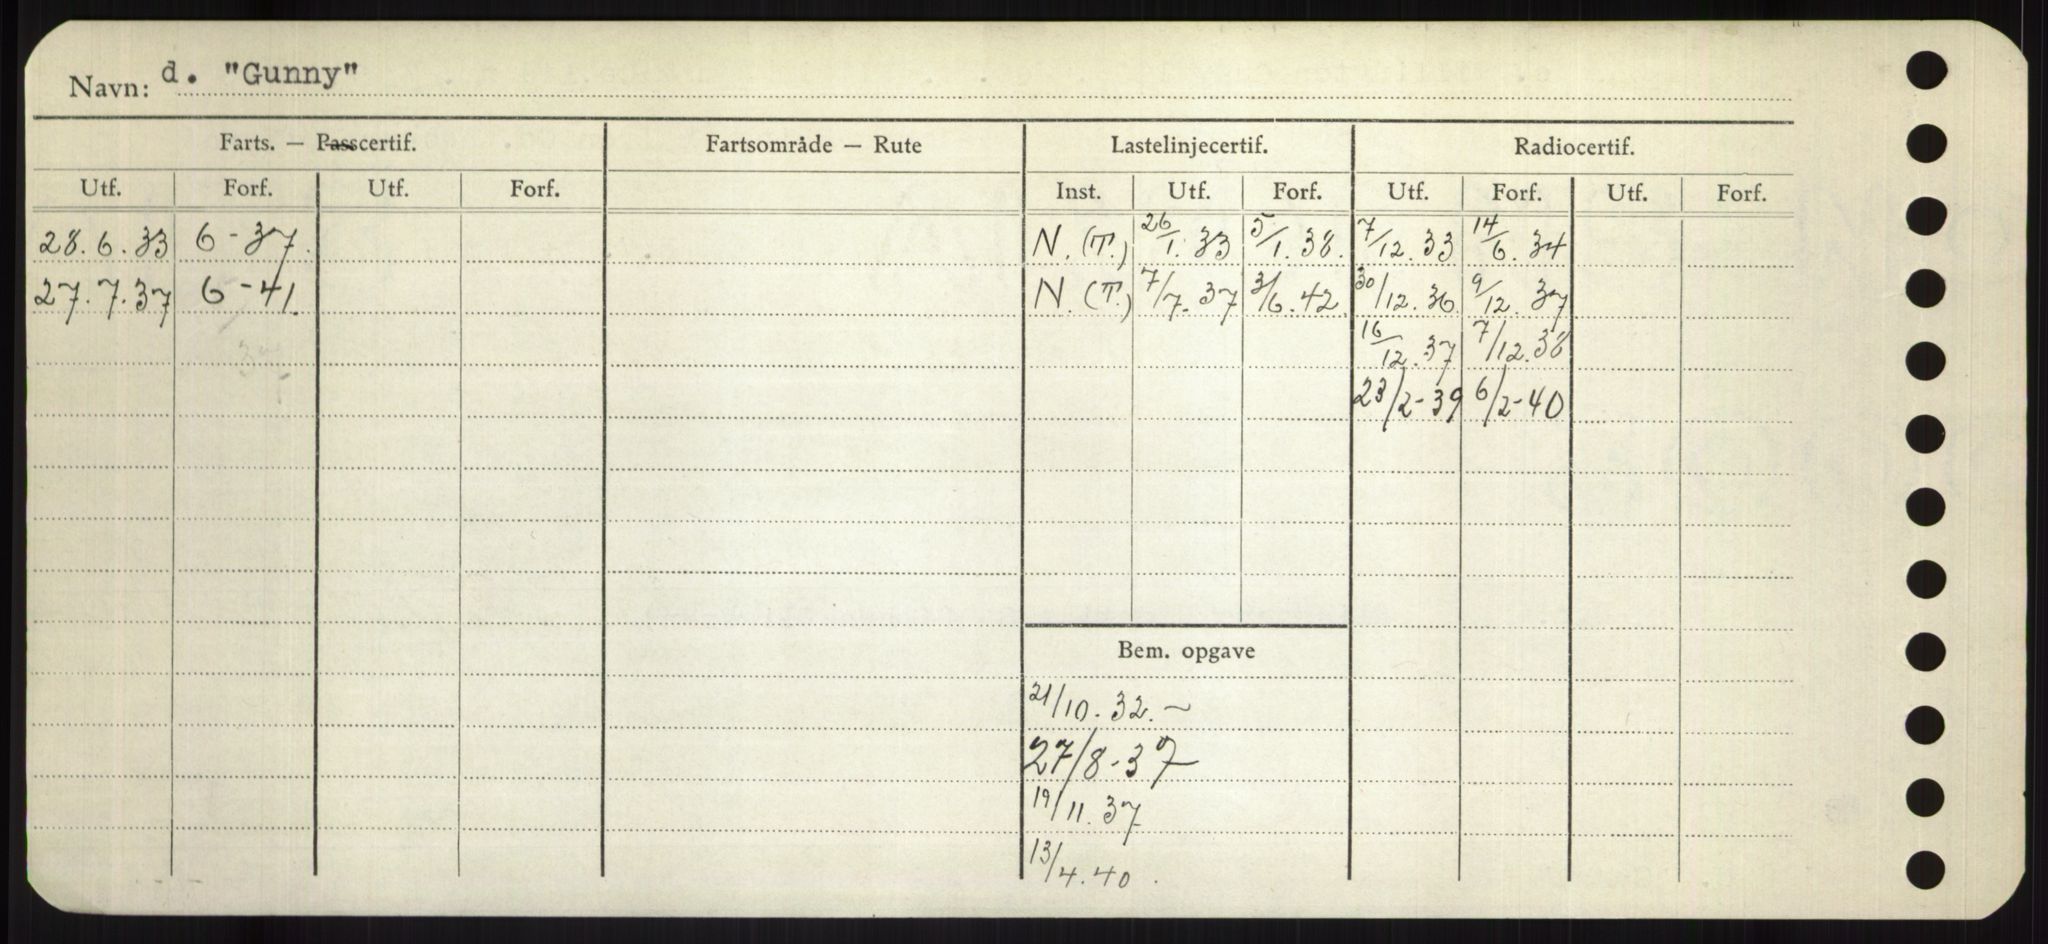 Navn: d. "Gunny"
Farts. — Passcertif. Fartsområde — Rute Lastelinjecertif. Radiocertif.
Utf. Forf. Utf. Forf. Inst. Utf. Forf. Utf. Forf. Utf. Forf.
28.6.33 6-37. N. (T.) 26/1.33 5/1.38. 7/12.33 14/6.34
27.7.37 6-41. N. (T.) 7/7.37 3/6.42 30/12.36 9/12.37
16/12.37 7/12.38
23/2-39 6/2-40
Bem. opgave
21/10.32.~
27/8-37
19/11.37
13/4.40.